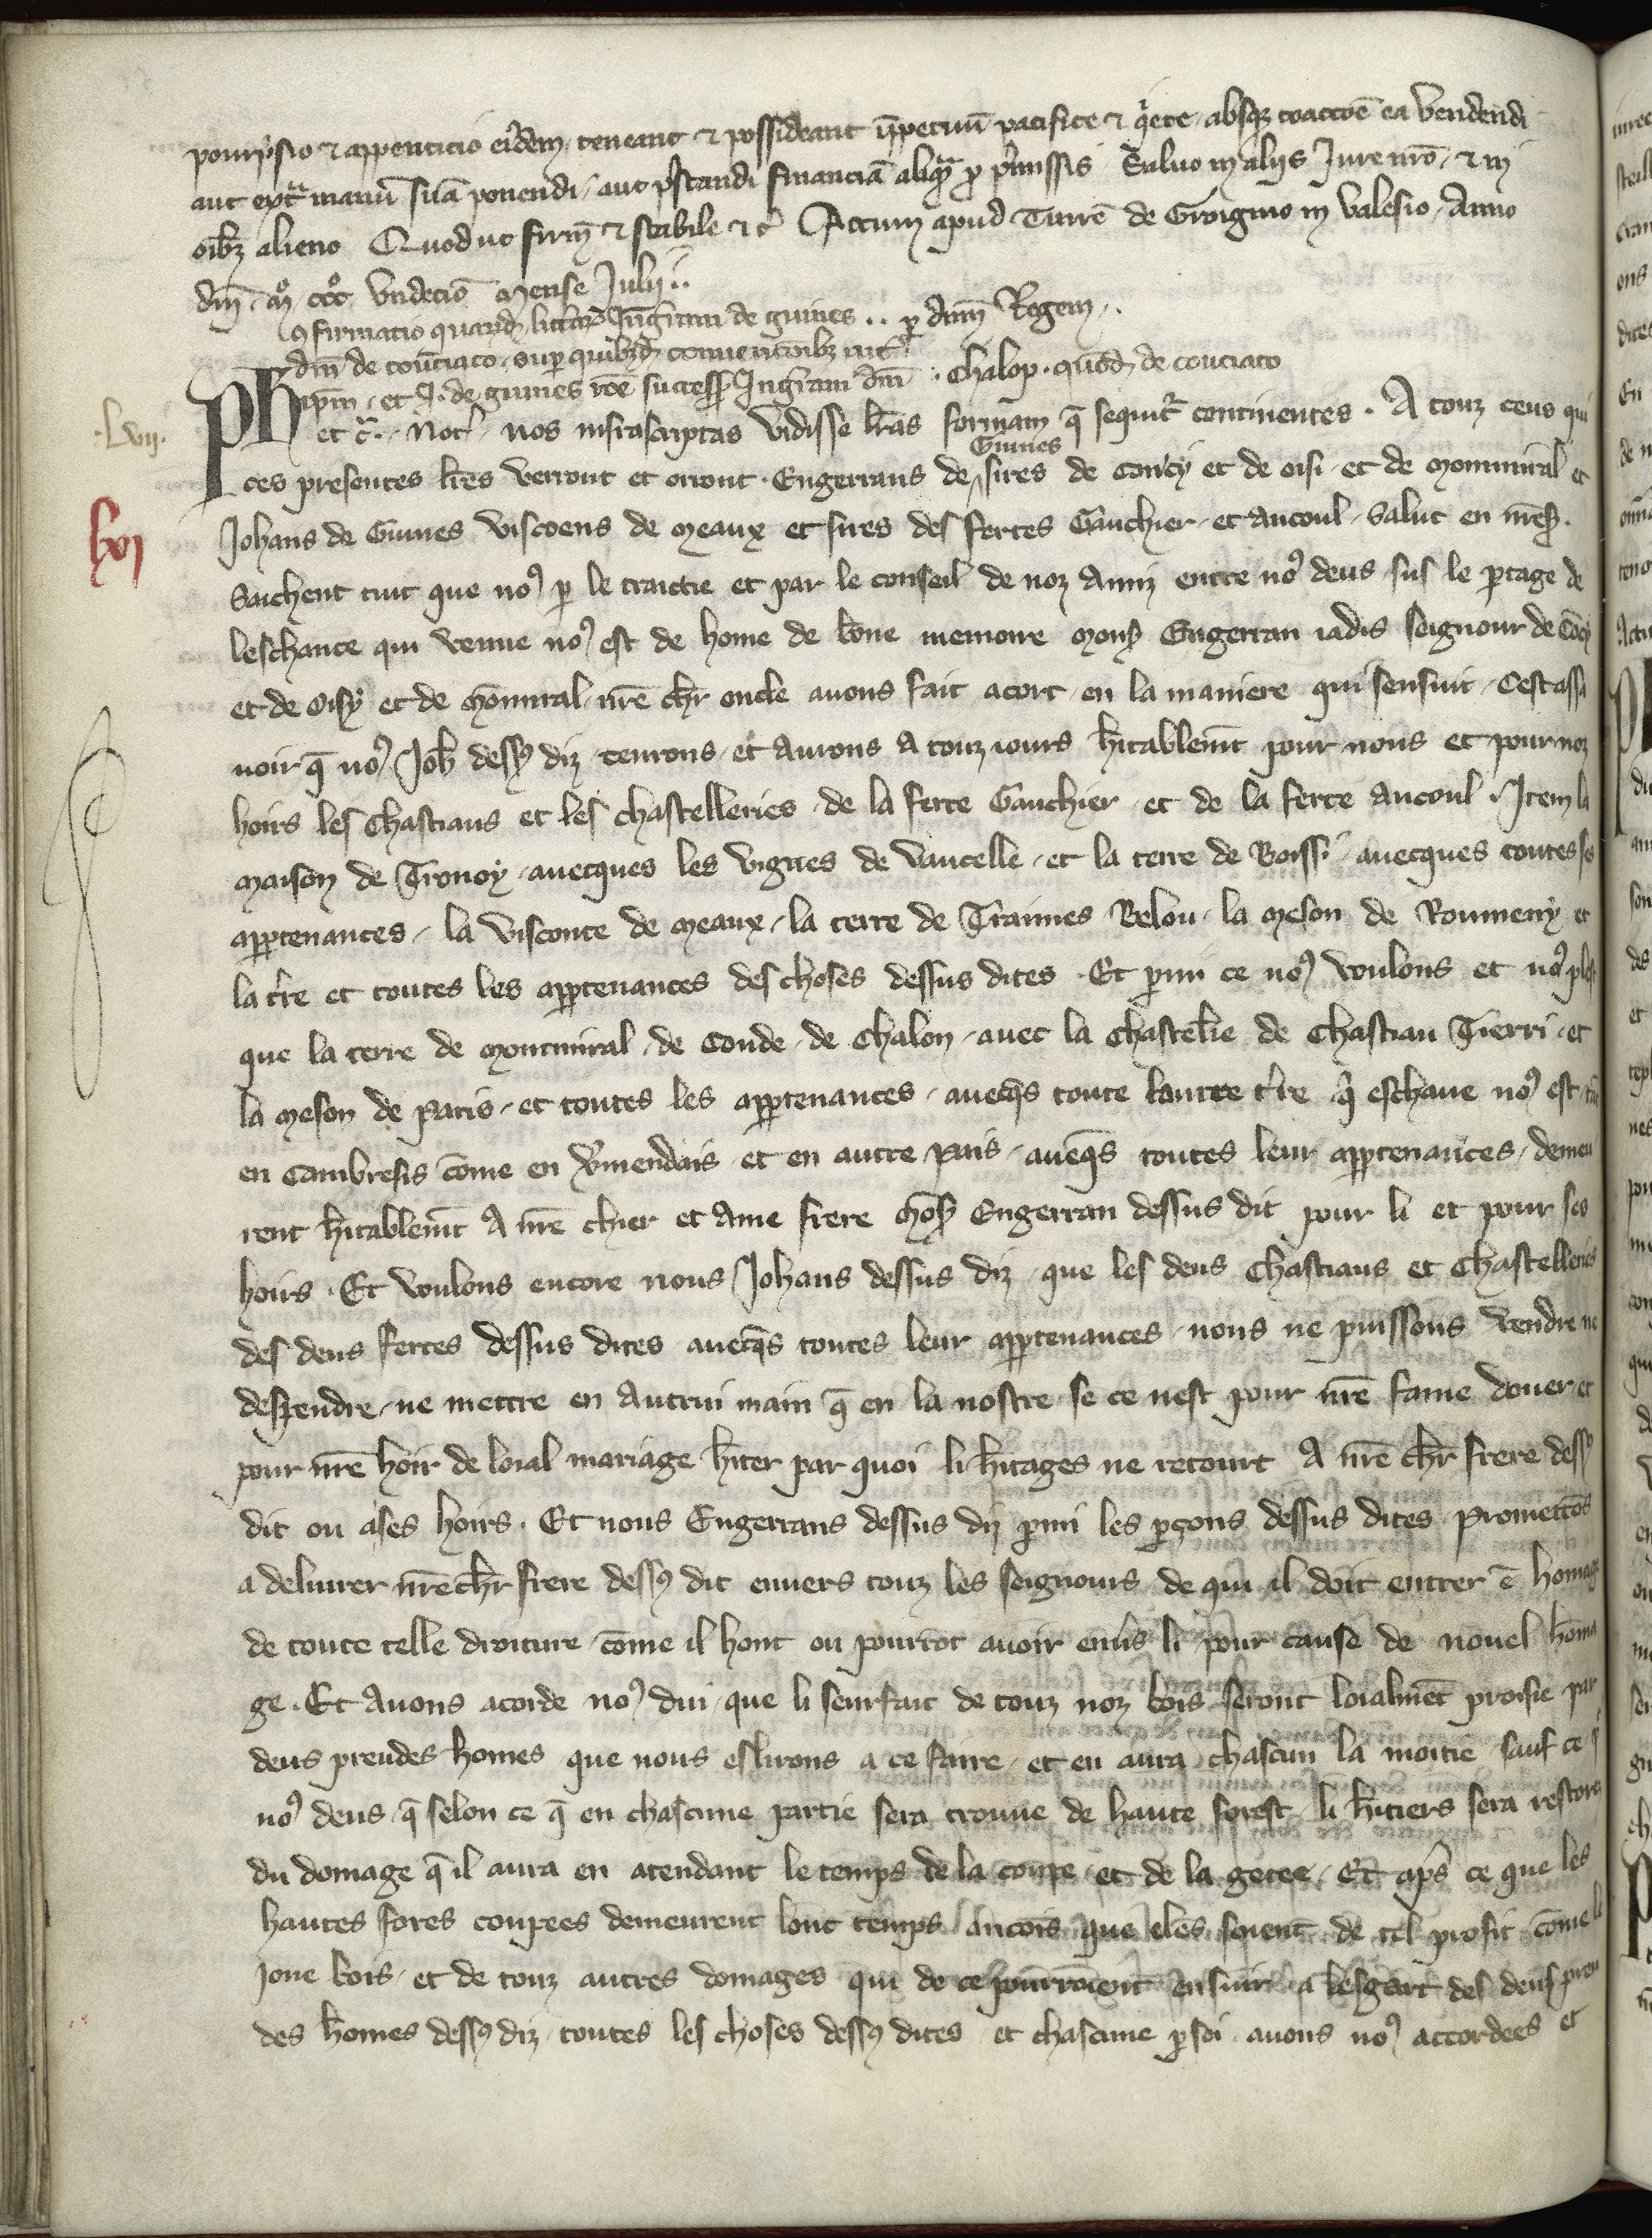 pourprisio & appenticio eisdem teneant & possideant inperpetuum pacifice & quiete absque coactione ea vendendi
aut extra manum suam ponendi aut prestandi financiam aliquam pro premissis Salvo in aliis Jure nrō & in
oībz alieno Quod ut firm̄ & stabile &c̄ Actum apud Turrē de Groigino in Valesio Anno
dn̄i mº cccº undecīo mense Julii
9firmatio quarūdā litterarū Ingerrani de guines .. p dn̄m Regem ..
dn̄i de couciaco super quibusdā convencionibz int
ip̄m et J. de guines rōe success Ingerrani dn̄i Chalop quōd de couciaco
.Lvii.
Ph et c̄. Not nos infrascriptas vidisse lr̄as formam q̄ sequit̄ continentes . A touz ceus qui
Guines
ces presentes lr̄es verront et orront . Engerrans de sires de Coucy et de oisi et de Monmiral et
lxvi
Johans de Guines viscoens de Meaux et sires des fertes Gauchier et Ancoul Salut en nr̄e s .
Saichent tuit que no9 p le traictie et par le conseil de noz Amiz entre no9 deus sus le ptage de
leschance qui venue no9 est de home de bōne memoire Mons Engerran iadis seigneur de Cōcy
et de Oisy et de Mōmiral nr̄e chr̄ oncle avons fait acort en la maniere qui sensuit Cestassa
voir q̄ no9 Joh dess9 diz tenrons et Aurons a touz iours h̄itablemt pour nous et pour noz
hoirs les Chastiaus et les chastelleries de la ferte Gauchier et de la ferte Ancoul Item la
maison de Tronoy avecques les vignes de Vaucelle et la terre de Boissi avecques toutes ses
apptenances la visconte de Meaux la terre de Traimes Belou la Meson de Roumeny et
la tr̄e et toutes les apptenances des choses dessus dites Et pmi ce no9 voulons et no9 plest
que la terre de Montmiral de Conde de Chalon avec la Chastelr̄ie de Chastiau Tierri et
la Meson de Paris et toutes les apptenances aveqs toute lautre tr̄e q̄ eschaue no9 est tāt
en Cambresis cōme en V̄mendais et en autre pais aveqs toutes leur apptenances demeu
rent h̄itablemt A nr̄e chier et Ame frere Mōs Engerran dessus dit pour li et pour ses
hoirs . Et voulons encore nous Johans dessus diz que les deus Chastiaus et Chastelleries
des deus fertes dessus dites aveqs toutes leur apptenances nous ne puissons vendre ne
despendre ne mettre en Autrui main q̄ en la nostre se ce nest pour nr̄e fame douer et
pour nr̄e hoir de loial mariage h̄iter par quoi li h̄itages ne retourt A nr̄e chr̄ frere dess9
dit ou a ses hoirs . Et nous Engerrans dessus diz pmi les pçons dessus dites Promettōs
a delivrer nr̄e chr̄ frere dess9 dit envers touz les seigneurs de qui il doit entrer ē homag
de toute telle droiture cōme il hont ou pourrōt avoir env̄s li pour cause de novel homa
ge . Et Avons acorde no9 dui que li seurfait de touz noz bois seront loialmēt proisie par
deus preudes homes que nous eslirons a ce faire et en aura chascun la moitie sauf ce
no9 deus q̄ selon ce q̄ en chascune partie sera trouve de haute forest li h̄itiers sera restore
du domage q̄ il aura en atendant le temps de la coupe et de la getee . Et ap̄s ce que les
hautes fores coupees demeurent lont temps ancois que eles soient de tel profit cōme le
jone bois et de touz autres domages qui de ce pourroient ensuir a lesgart des deus preu
des homes dess9 diz toutes les choses dess9 dites et chascune p soi avons no9 accordees et